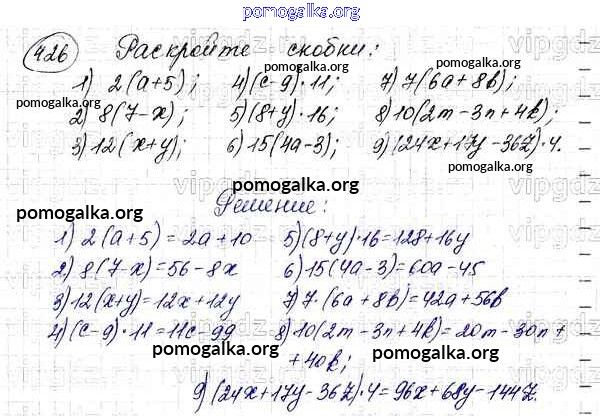 pomogalka.org
426 Раскройте скобки:
1) 2(a+5); 4) (c-9)·11; 7) 7(6a+8b);
2) 8(7-x); 5) (8+y)·16; 8) 10(2m-3n+4k);
3) 12(x+y); 6) 15(4a-3); 9) (24x+17y-36z)·4.
pomogalka.org
pomogalka.org
pomogalka.org
pomogalka.org
Решение:
pomogalka.org
1) 2(a+5)=2a+10 5) (8+y)·16=128+16y
2) 8(7-x)=56-8x 6) 15(4a-3)=60a-45
3) 12(x+y)=12x+12y 7) 7·(6a+8b)=42a+56b
4) (c-9)·11=11c-99 8) 10(2m-3n+4k)=20m-30n+
+40k;
pomogalka.org
pomogalka.org
9) (24x+17y-36z)·4=96x+68y-144z.
pomogalka.org